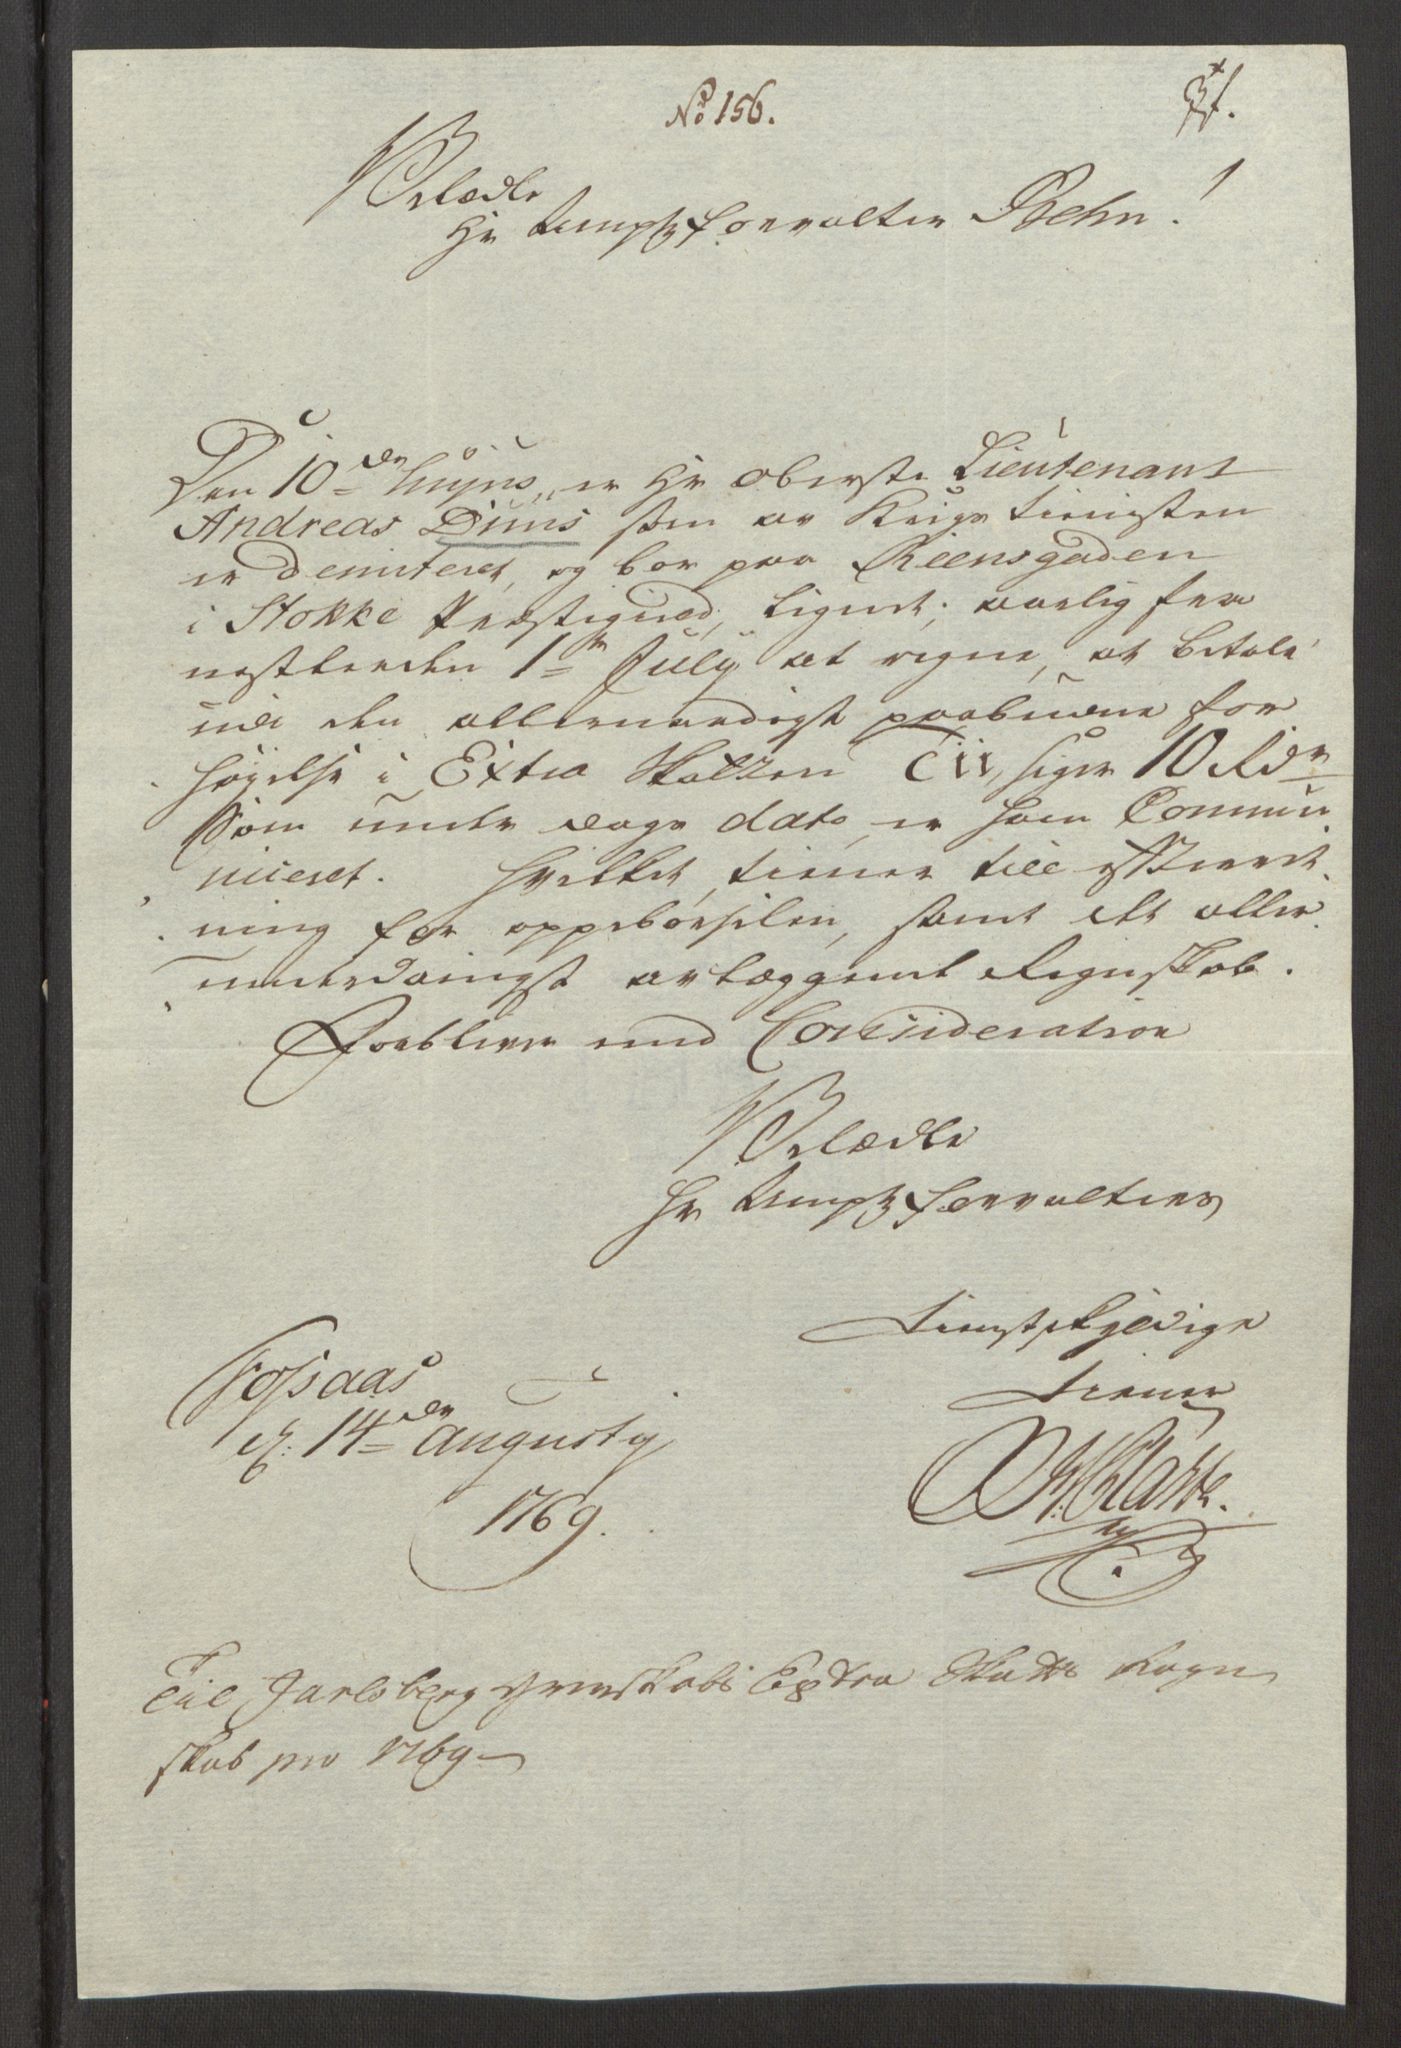 No 156.
Velædle
Hr Ampts forvalter Behn!
Den 10de huijus, er Hr Oberste Lieutenant
Andreas Duus som av Krigs tienesten
er demiteret, og boe paa Reensgaden
i Stokke Præstegield, lignet, aarlig fra
nestleeden 1te July at regne, at betale
ved den allernaadigst paabudne for
høyelse i Extra Skatten Tii, siger 10 Rdr
Som under dags dato er ham Commun
niceret. Hvilket tiener till efterret
ning for oppebørselen, samt det aller
underdanigst aflæggende Regnskab.
Forbliver med Consideration
Velædle
Hr Ampts forvalters
Tienstskyldige
Tiener
Fossaas
d. 14de Augusty
1769.
Til Jarlsberg Grevskabs Extra Skatts Regn
skab pro 1769